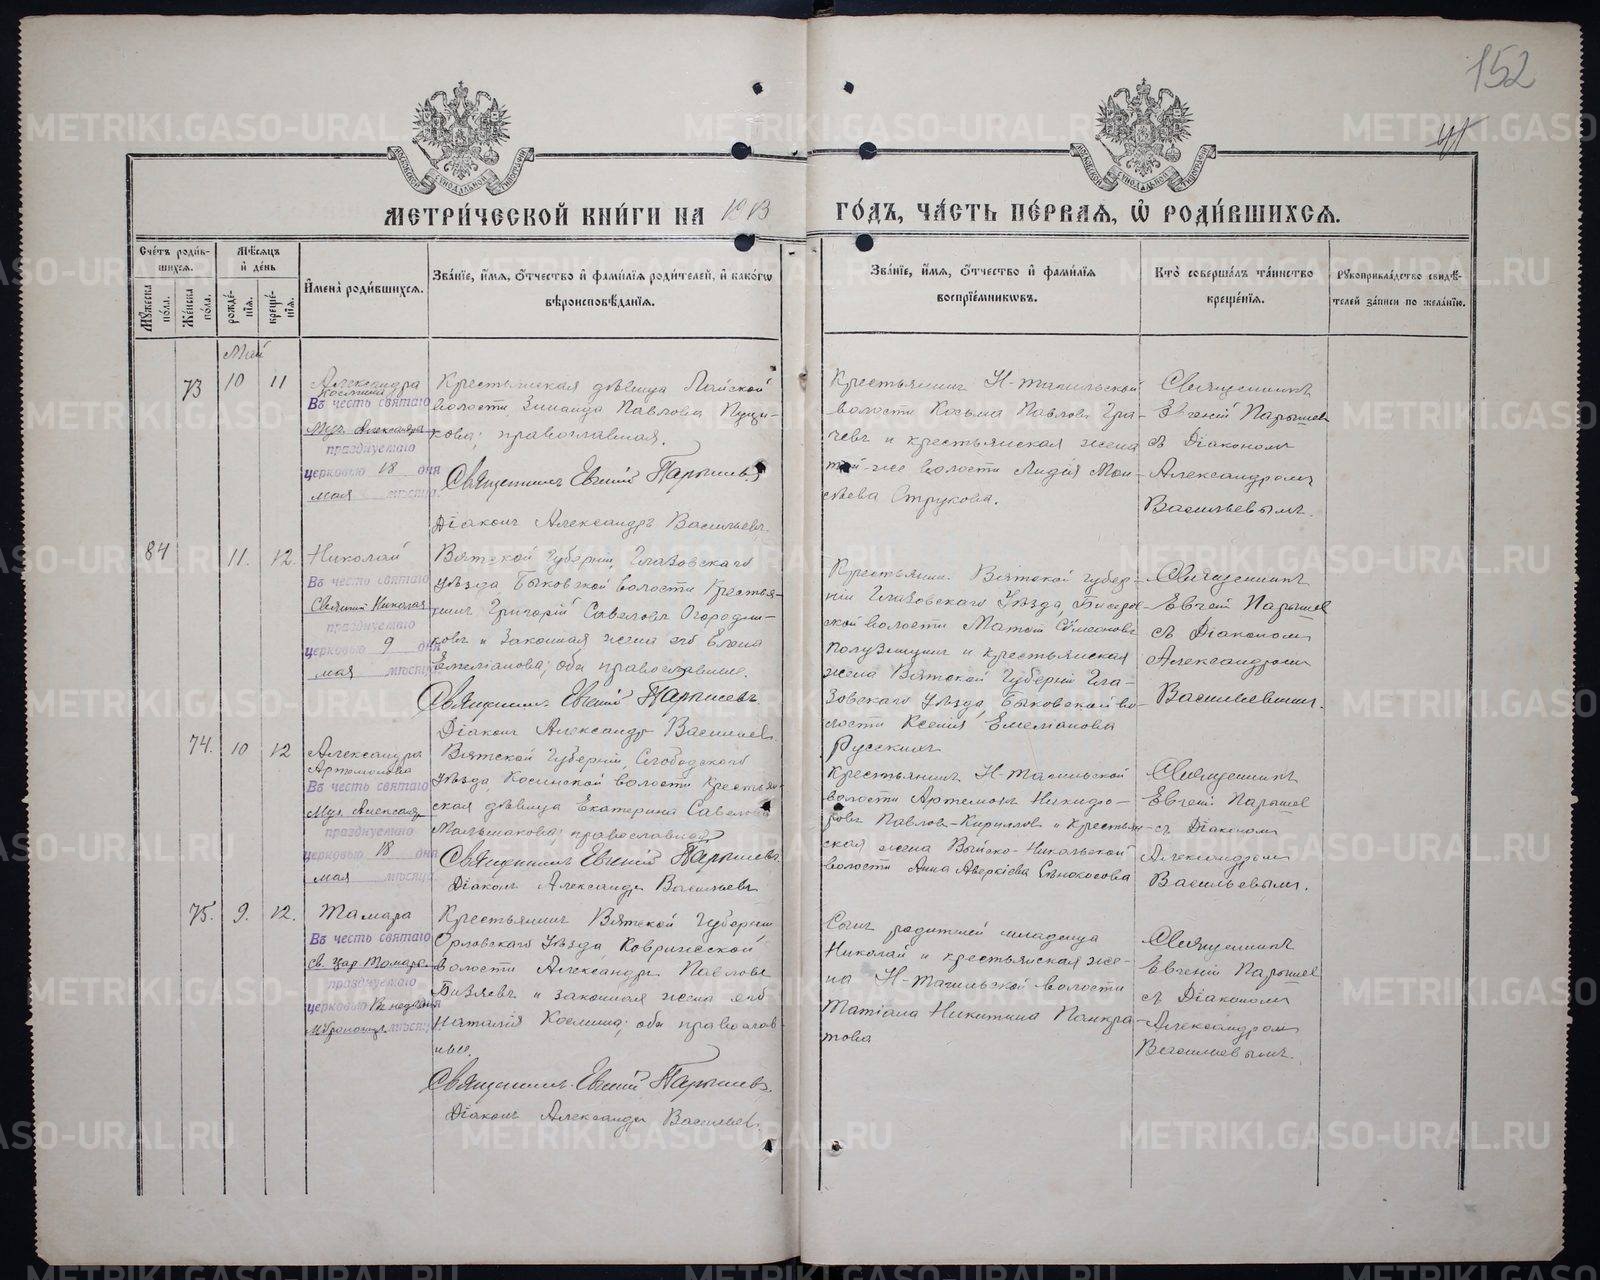 152
МОСКОВСКОЙ СѴНОДАЛЬНОЙ ТИПОГРАФІИ
МОСКОВСКОЙ СѴНОДАЛЬНОЙ ТИПОГРАФІИ
МЕТРИ́ЧЕСКОЙ КНИ́ГИ НА 1913 ГО́ДЪ, ЧА́СТЬ ПЕ́РВАѦ, Ѽ РОДИ́ВШИХСѦ.
Сче́тъ роди́вшихсѧ.
Мꙋ́жеска по́ла.
Же́нска по́ла.
Мѣ́сѧцъ и҆ де́нь
рожде́нїѧ.
креще́нїѧ.
И҆мена̀ роди́вшихсѧ.
Зва́нїе, и҆́мѧ, ѻ҆́тчество и҆ фами́лїѧ роди́телей, и҆ како́гѡ
вѣроисповѣ́данїѧ.
Зва́нїе, и҆́мѧ, ѻ҆́тчество и҆ фами́лїѧ
воспрїе́мникѡвъ.
Кто̀ соверша́лъ та́инство
креще́нїѧ.
Рꙋкоприкла́дство свидѣ́-
телей за́писи по жела́нїю.
Май
73 10 11
Александра
Косьмина
Въ честь святаго
Муч. Александр
празднуемаго
церковью 18 дня
мая мѣсяца
Крестьянская дѣвица Лайской
волости Зинаида Павлова Пуцы-
кова; православная.
Священникъ Евгеній Парышевъ
Діаконъ Александръ Васильевъ.
Крестьянинъ Н-тагильской
волости Косьма Павловъ Гра-
чевъ и крестьянская жена
той-же волости Лидія Мои-
сѣева Струкова.
Священникъ
Евгеній Парышев
съ Діакономъ
Александромъ
Васильевымъ.
84 11. 12.
Николай
Въ честь святаго
Святит Николая
празднуемаго
церковью 9 дня
мая мѣсяца
Вятской Губерніи, Глазовскаго
Уѣзда Быковской волости Крестья-
нинъ Григорій Савеловъ Огородни-
ковъ и Законная жена его Елена
Емеліанова; оба православные.
Священникъ Евгеній Парышевъ.
Діаконъ Александръ Васильев.
Крестьянин. Вятской Губер-
ніи Глазовскаго Уѣзда, Бисеров-
ской волости Матѳей Сѵмеоновъ
Полузицинъ и крестьянская
жена Вятской Губерніи Гла-
зовскаго Уѣзда, Быковской во-
лости Ксенія Емеліанова
Русскихъ
Священникъ
Евгеній Парышев
съ Діакономъ
Александромъ
Васильевымъ.
74. 10 12
Александра
Артемонова
Въ честь святаго
Муч. Александр
празднуемаго
церковью 18 дня
мая мѣсяца
Вятской Губерніи, Слободскаго
Уѣзда, Косинской волости Крестьян-
ская дѣвица Екатерина Савелова
Малышакова; православная
Священникъ Евгеній Парышевъ
Діаконъ Александръ Васильевъ
Крестьянинъ Н-тагильской
волости Артемонъ Никифо-
ровъ Павлов-Кирилловъ и Крестьян-
ская жена Выйско-Никольской
волости Анна Аверкіева Сѣнокосова
Священникъ
Евгеній Парышев
съ Діакономъ
Александромъ
Васильевымъ.
75. 9. 12.
Тамара
Въ честь святаго
св. Цар. Тамара
празднуемаго
церковью В недѣл дня
Мѵроносиц мѣсяца
Крестьянинъ Вятской Губерніи
Орловскаго Уѣзда Ковригеской
волости Александръ Павловъ
Бизяевъ и законная жена его
Наталія Космина; оба православ-
ные.
Священникъ Евгеній Парышевъ.
Діаконъ Александръ Васильев.
Сынъ родителей младенца
Николай и крестьянская же-
на Н-Тагильской волости
Татіана Никитина Панкра-
това
Священникъ
Евгеній Парышев
съ Діакономъ
Александромъ
Васильевымъ.
METRIKI.GASO-URAL.RU